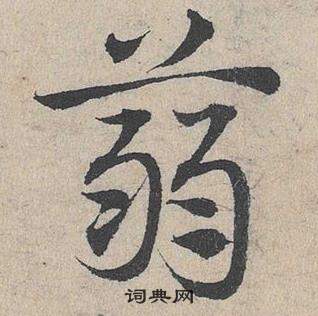 蒻
词典网